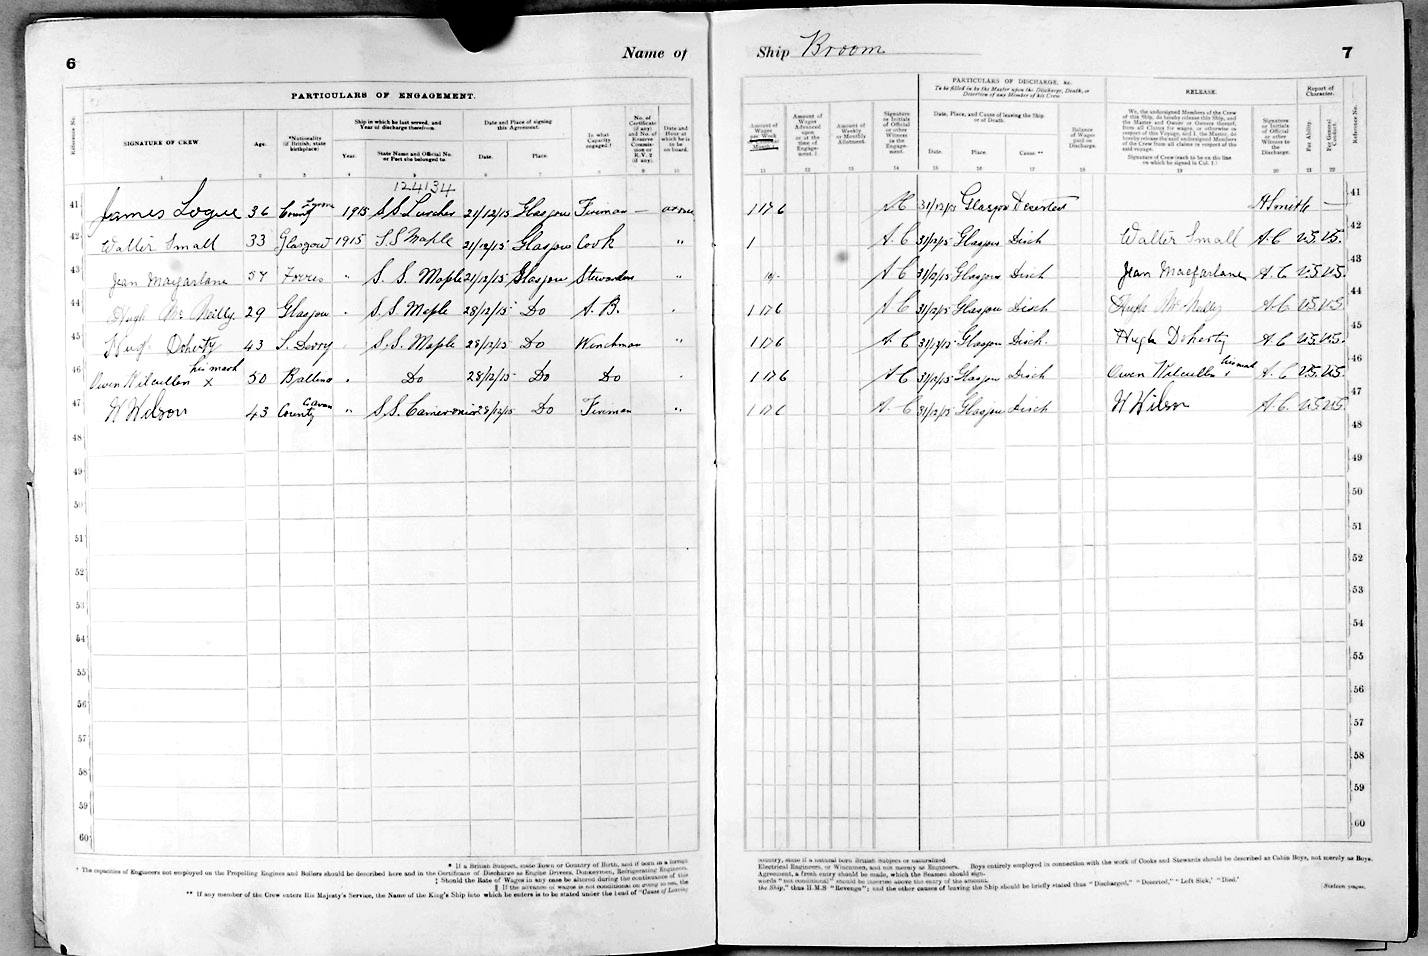 6
Name of
Ship Broom
7
PARTICULARS OF ENGAGEMENT.
PARTICULARS OF DISCHARGE, &c.
To be filled in by the Master upon the Discharge, Death, or Desertion of any Member of his Crew
RELEASE.
Report of Character.
Reference No.
SIGNATURE OF CREW
Age.
*Nationality (if British, state birthplace)
Ship in which he last served, and Year of discharge therefrom.
Year.
State Name and Official No. or Port she belonged to.
Date and Place of signing this Agreement.
Date.
Place.
In what Capacity engaged.†
No. of Certificate (if any) and No. of Reserve Commission or R.V.2 (if any).
Date and Hour at which he is to be on board.
Amount of Wages per Week
Amount of Wages Advanced upon or at the time of Engagement.‡
Amount of Weekly or Monthly Allotment.
Signature or Initials of Official or other Witness to the Engagement.
Date, Place, and Cause of leaving the Ship or of Death.
Date.
Place.
Cause.**
Balance of Wages paid on Discharge.
We, the undersigned Members of the Crew of this Ship, do hereby release this Ship, and the Master and Owner or Owners thereof, from all Claims for wages, or otherwise in respect of this Voyage, and I, the Master, do hereby release the said undersigned Members of the Crew from all claims in respect of the said voyage.
Signature of Crew (each to be on the line on which he signed in Col. 1.)
Signature or Initials of Official or other Witness to the Discharge.
For Ability.
For General Conduct.
Reference No.
1 2 3 4 5 6 7 8 9 10 11 12 13 14 15 16 17 18 19 20 21 22
124134
41 James Logue 36 County Tyrone 1915 S S Lurcher 21/12/15 Glasgow Fireman — at once 1 17 6 AC 31/12/15 Glasgow Deserted A Smith — 41
42 Walter Small 33 Glasgow 1915 S.S Maple 21/12/15 Glasgow Cook " 1 A. C 31/12/15 Glasgow Disch Walter Small A. C V.S. V.S. 42
43 Jean Macfarlane 57 Forres " S. S. Maple 21/12/15 Glasgow Stewardess " A C 31/12/15 Glasgow Disch Jean Macfarlane A. C V.S V.S. 43
44 Hugh Mc Neilly 29 Glasgow " S.S Maple 28/12/15 Do A. B. " 1 17 6 A C 31/12/15 Glasgow Disch — Hugh Mc Neilly A. C V.S V.S. 44
45 Hugh Doherty 43 L. Derry " S.S. Maple 28/12/15 Do Winchman " 1 17 6 A. C 31/12/15 Glasgow Disch. Hugh Doherty A C V.S. V.S. 45
46 Owen Kilcullen his mark x 50 Ballina " Do 28/12/15 Do Do " 1 17 6 A C 31/12/15 Glasgow Disch Owen Kilcullen his mark x A. C V.S. V.S. 46
47 W Wilson 43 County Cavan " S.S. Cameronia 28/12/15 Do Fireman " 1 17 6 A. C 31/12/15 Glasgow Disch W Wilson A. C. V.S V.S. 47
48 48
49 49
50 50
51 51
52 52
53 53
54 54
55 55
56 56
57 57
58 58
59 59
60 60
* If a British Subject, state Town or Country of Birth, and if born in a foreign country, state if a natural born British Subject or naturalized.
† The capacities of Engineers not employed on the Propelling Engines and Boilers should be described here and in the Certificate of Discharge as Engine Drivers, Donkeymen, Refrigerating Engineers, Electrical Engineers, or Winchmen, and not merely as Engineers. Boys entirely employed in connection with the work of Cooks and Stewards should be described as Cabin Boys, not merely as Boys.
‡ Should the Rate of Wages in any case be altered during the continuance of this Agreement, a fresh entry should be made, which the Seamen should sign.
|| If the advance of wages is not conditional on going to sea, the words "not conditional" should be inserted above the entry of the amount.
** If any member of the Crew enters His Majesty's Service, the Name of the King's Ship into which he enters is to be stated under the head of "Cause of Leaving the Ship," thus H.M.S "Revenge"; and the other causes of leaving the Ship should be briefly stated thus "Discharged," "Deserted," "Left Sick," "Died."
Sixteen pages.